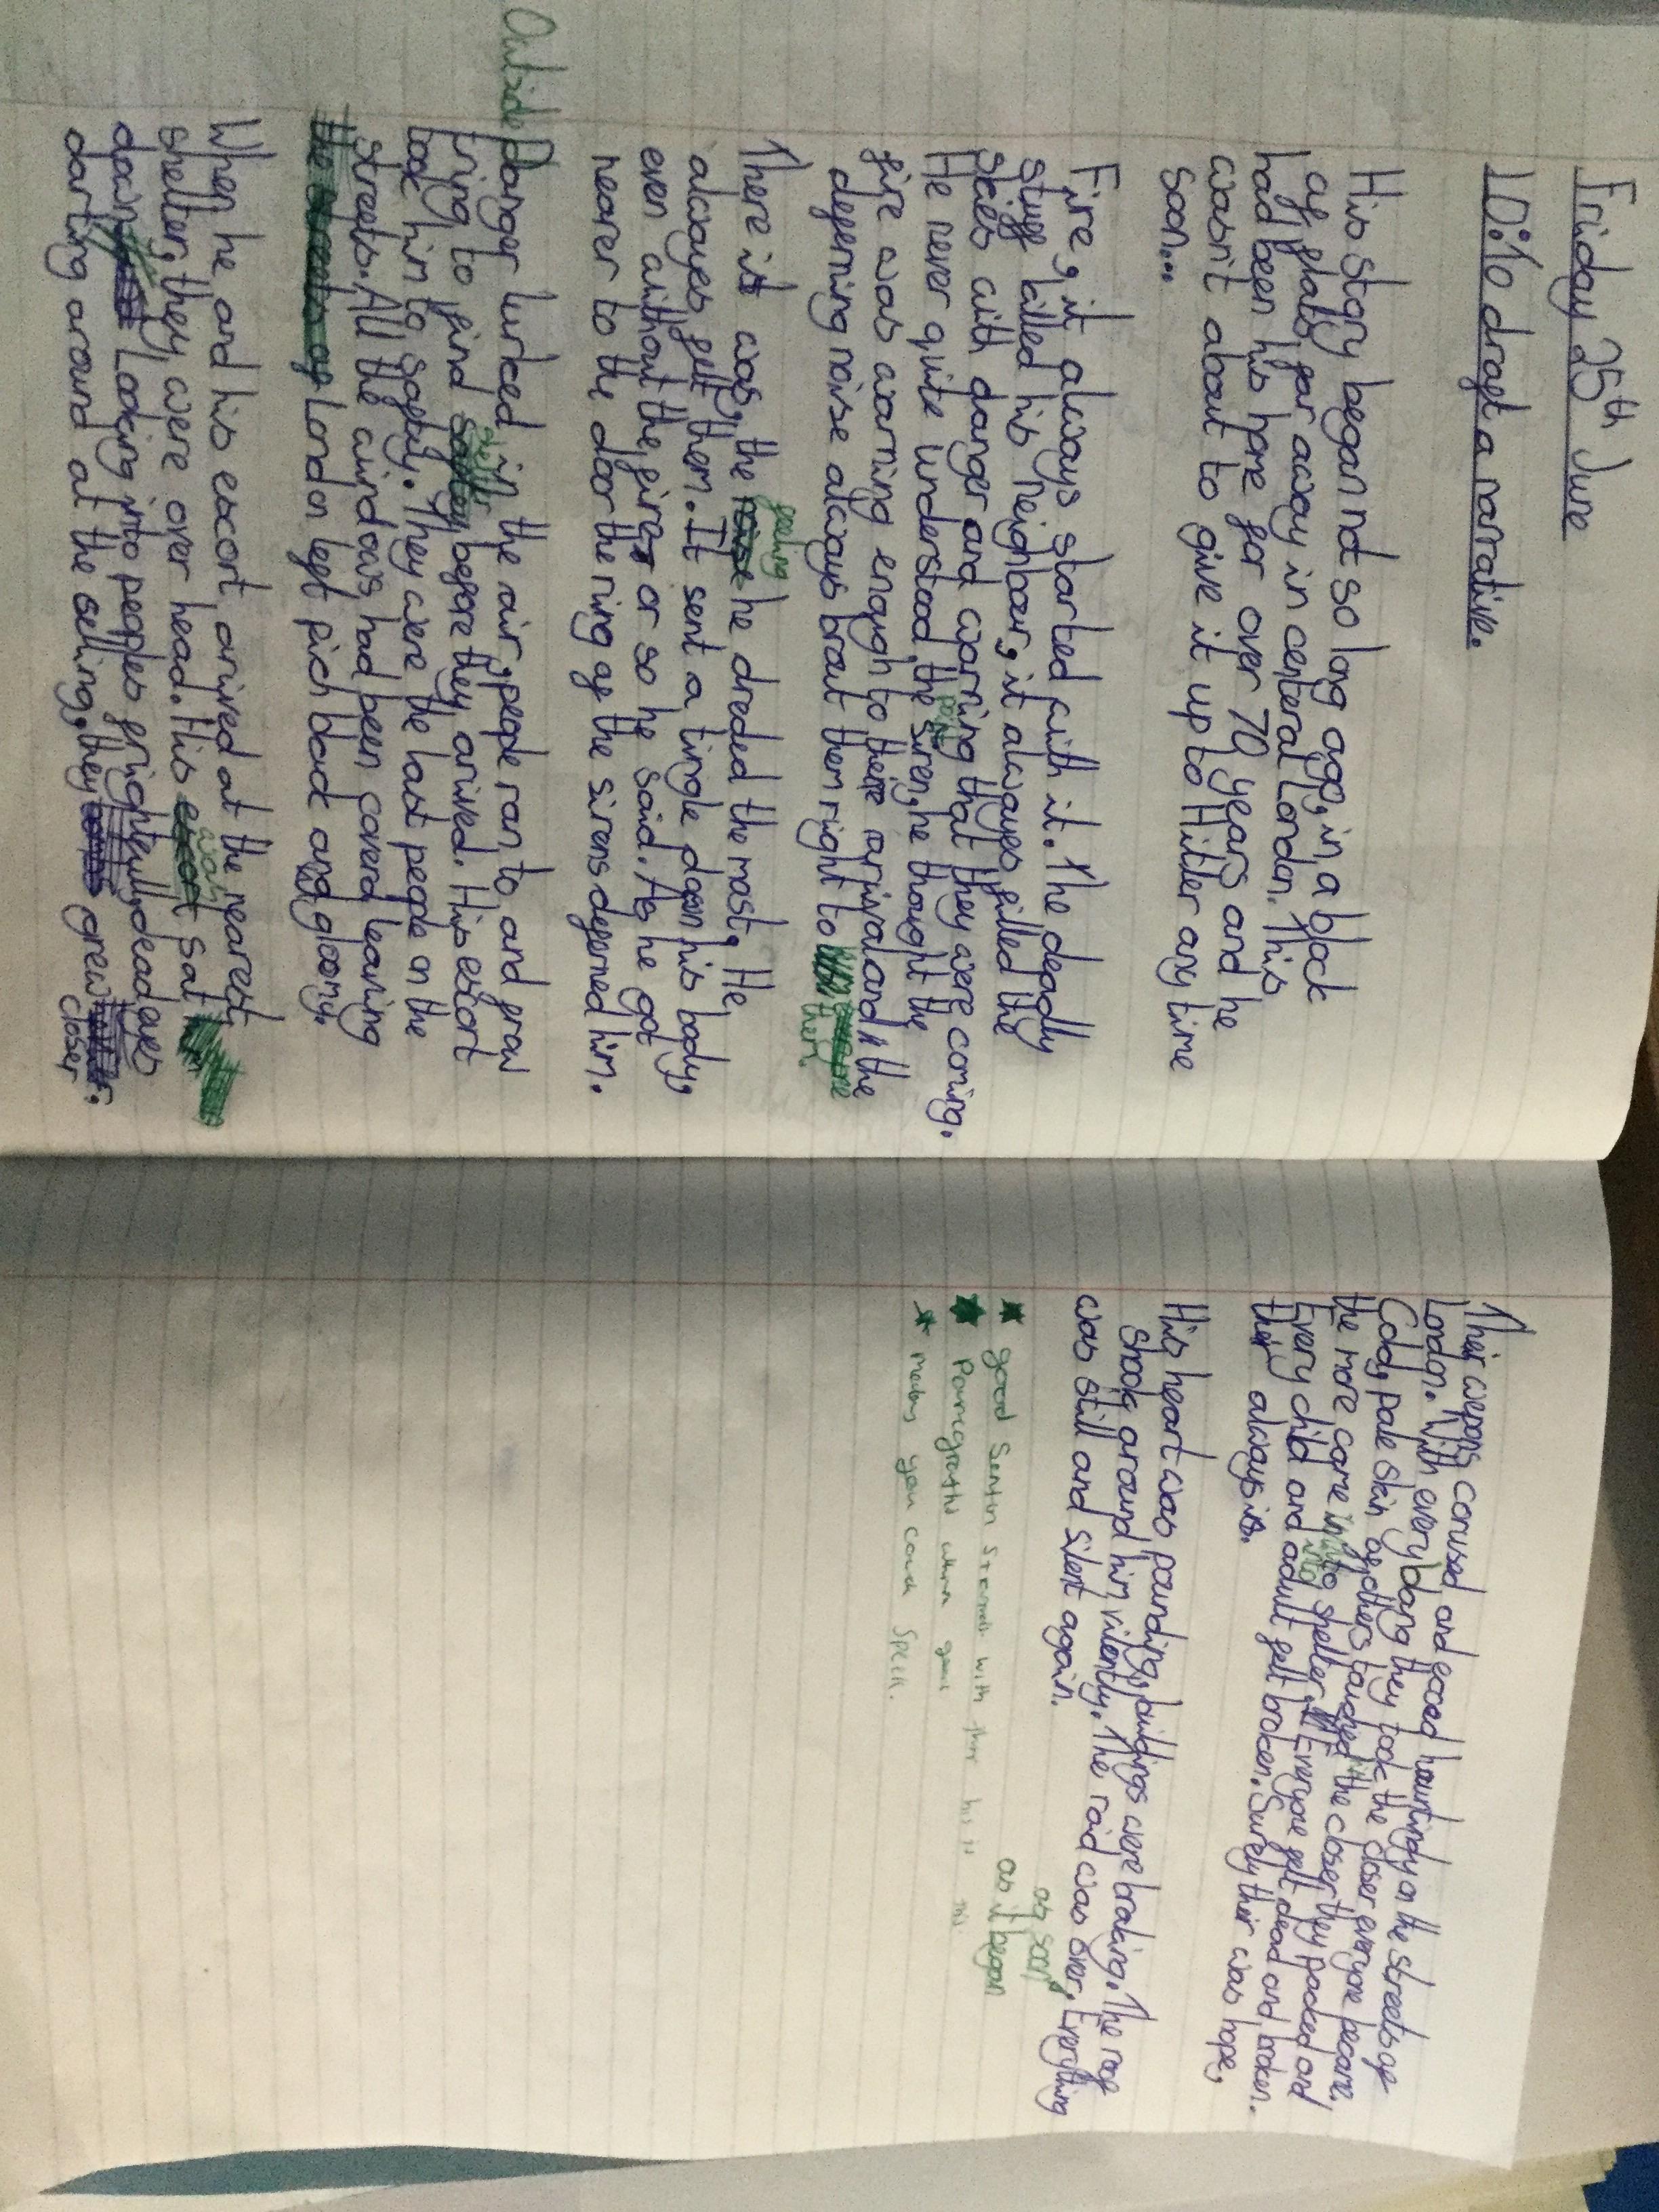 Friday 25th June
LO: To draft a narrative.
His story began not so long ago, in a block
of flats, far away in centeral London. This
had been his home for over 70 years and he
wasn't about to give it up to Hitler any time
soon...
Fire, it always started with it. The deadly
stuff killed his neighbour, it alwayes filled the
skies with danger and warning that they were coming.
He never quite understood the point
siren, he thought the
fire was warning enough to there arrival and the
deferning noise always brout them right to them.
There it was, the feeling he dreded the most. He
alwayes felt them. It sent a tingle down his body,
even without the fire or so he said. As he got
nearer to the door the ring of the sirens deferned him.
Outside Danger lurked in the air, people ran to and frow
tring to find shelter before they arived. His escort
took him to safety. They were the last people on the
streets. All the windows had been coverd leaving
London left pich black and gloomy.
When he and his escort arived at the nearest
shelter, they were over head. His escort sat
down. Looking into peoples frightfully dead eyes
darting around at the selling, they grew closer.
Their wepons corused and ecoed hauntingly on the streets of
London. With every bang they took the closer everyone became.
Cold, pale skin of others touched the closer they packed and
the more came into shelter. Everyone felt dead and broken.
Every child and adult felt broken. Surely their was hope,
their always is.
His heart was pounding, buildings were braking. The roof
shook around him vilently. The raid was over. Everything
was still and silent again.
as soon
as it began
good
Paragraths